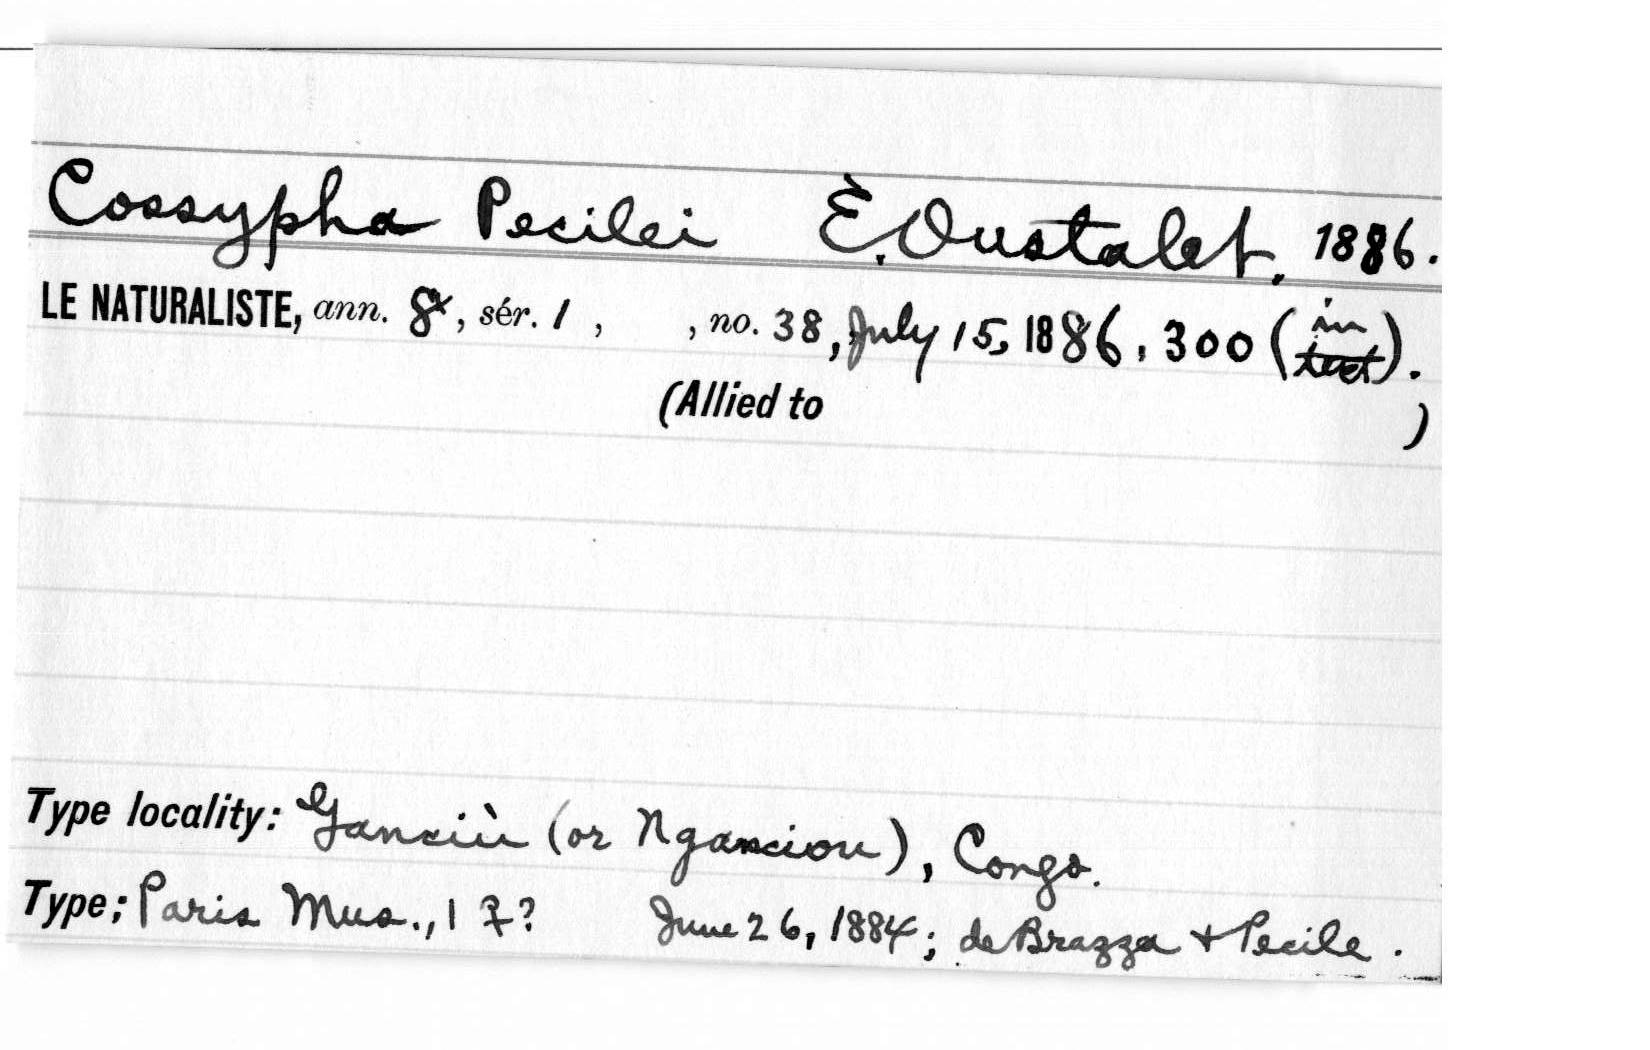 Cossypha Pecilei É. Oustalet, 1886.
LE NATURALISTE, ann. 8, sér. 1, , no. 38, July 15, 1886, 300 (in text).
(Allied to )
Type locality: Ganciù (or Ngancion), Congo.
Type; Paris Mus., 1 ♀? June 26, 1884; de Brazza + Pecile.